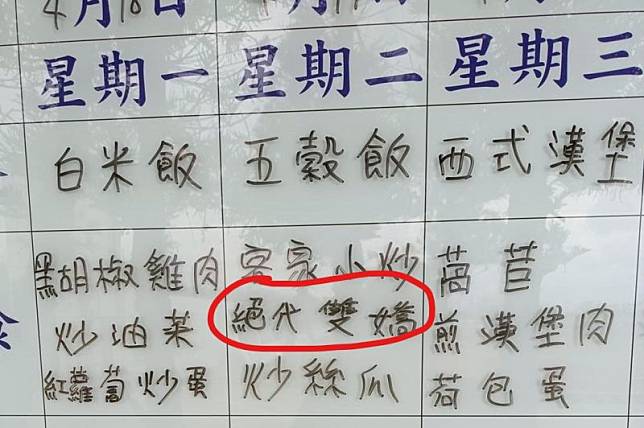 4月18日
星期一 星期二 星期三
白米飯 五穀飯 西式漢堡
黑胡椒雞肉 客家小炒 萵苣
炒油菜 絕代雙嬌 煎漢堡肉
紅蘿蔔炒蛋 炒絲瓜 荷包蛋